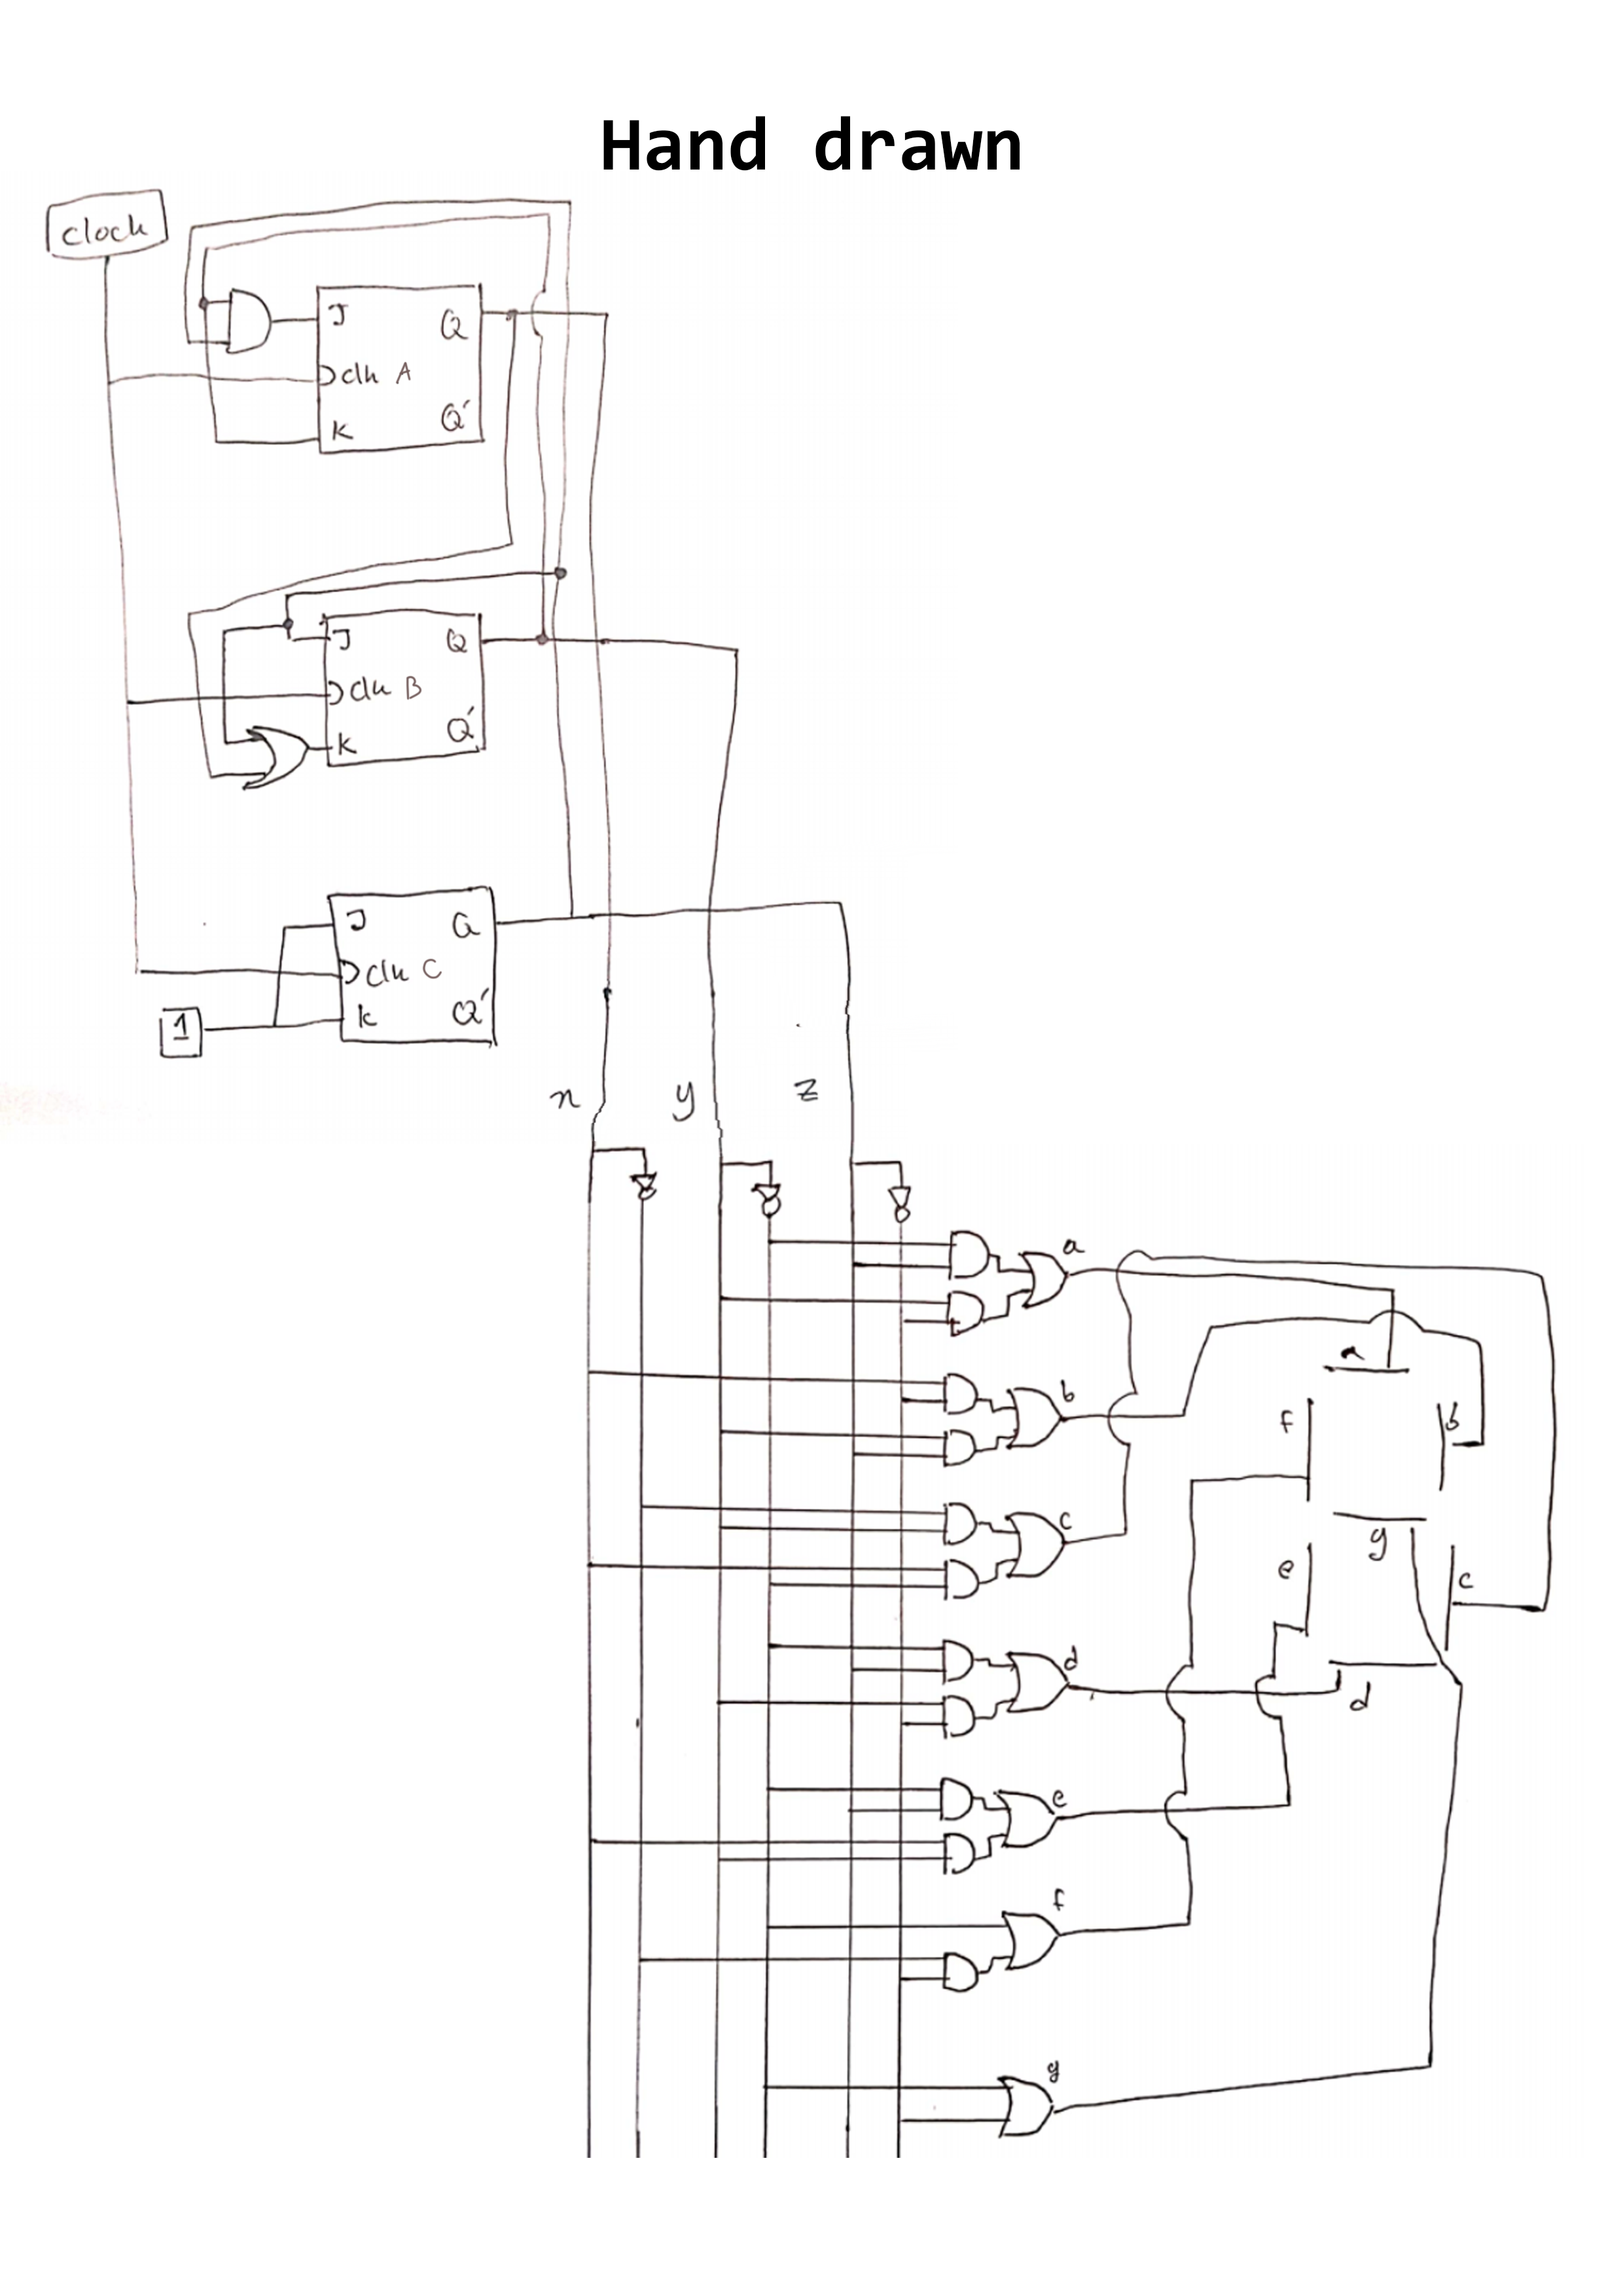 Hand drawn
clock
J Q
clk A
K Q'
J Q
clk B
K Q'
J Q
clk C
1 K Q'
x y z
a
b
c
d
e
f
g
a
f b
g
e c
d